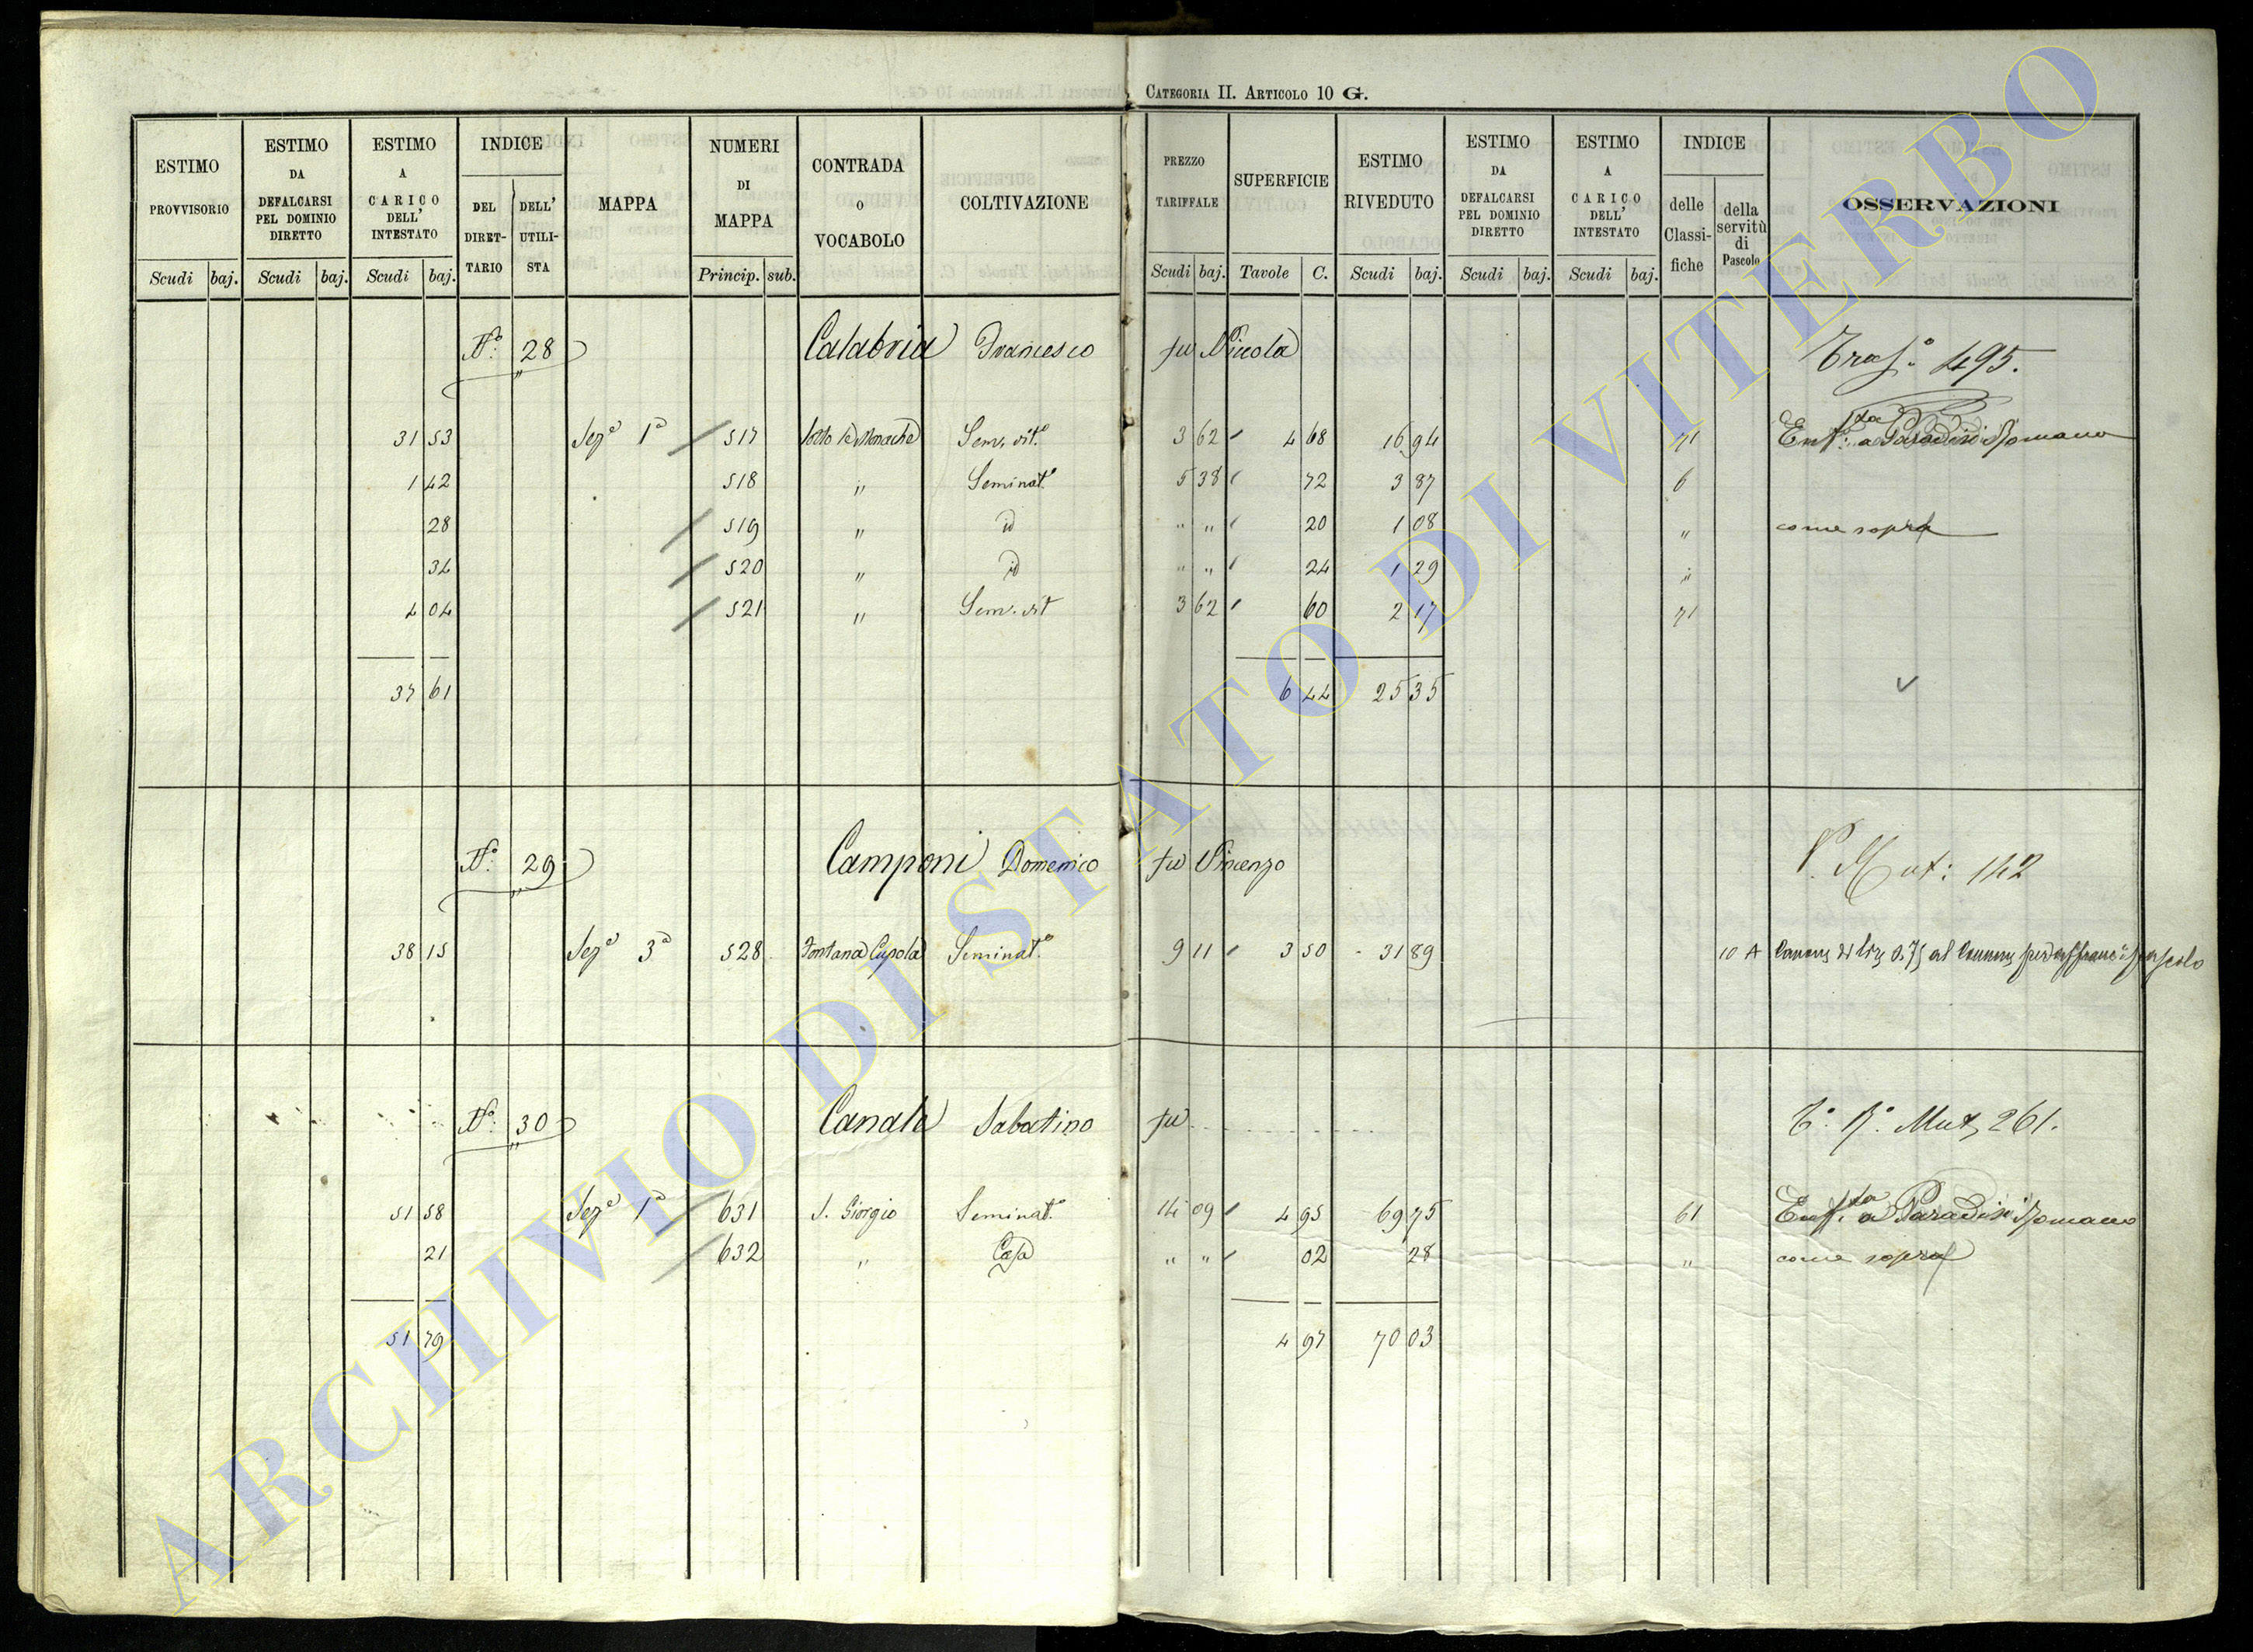 CATEGORIA II. ARTICOLO 10 G.
ESTIMO PROVVISORIO Scudi baj. ESTIMO DA DEFALCARSI PEL DOMINIO DIRETTO Scudi baj. ESTIMO A CARICO DELL' INTESTATO Scudi baj. INDICE DEL DIRETTARIO DELL' UTILISTA MAPPA NUMERI DI MAPPA Princip. sub. CONTRADA O VOCABOLO COLTIVAZIONE PREZZO TARIFFALE Scudi baj. SUPERFICIE Tavole C. ESTIMO RIVEDUTO Scudi baj. ESTIMO DA DEFALCARSI PEL DOMINIO DIRETTO Scudi baj. ESTIMO A CARICO DELL' INTESTATO Scudi baj. INDICE delle Classifiche della servitù di Pascolo OSSERVAZIONI
N.° 28 Calabria Francesco fu Nicola 495.
31 53 Sez.e 1a 517 Sotto le Monache Sem. vit.o 3 62 4 68 16 94 71 Enf.ta a Paradisi Romano
1 42 518 " Seminat.o 5 38 72 3 87 6
28 519 " id " " 20 1 08 " come sopra
34 520 " id " " 24 1 29 "
4 04 521 " Sem. vit 3 62 60 2 17 71
37 61 6 44 25 35
N.° 29 Camponi Domenico fu Vincenzo P. Mut: 142
38 15 Sez.e 3a 528 Fontana Cupola Seminat.o 9 11 3 50 31 89 10 A al Comune pascolo
N.° 30 Canale Sabatino fu . . . . . . . . . Mut, 261.
51 58 Sez.e 1a 631 S. Giorgio Seminat.o 14 09 4 95 69 75 61 Enf.ta a Paradisi Romano
21 632 " Casa " " 02 28 " come sopra
51 79 4 97 70 03
ARCHIVIO DI STATO DI VITERBO